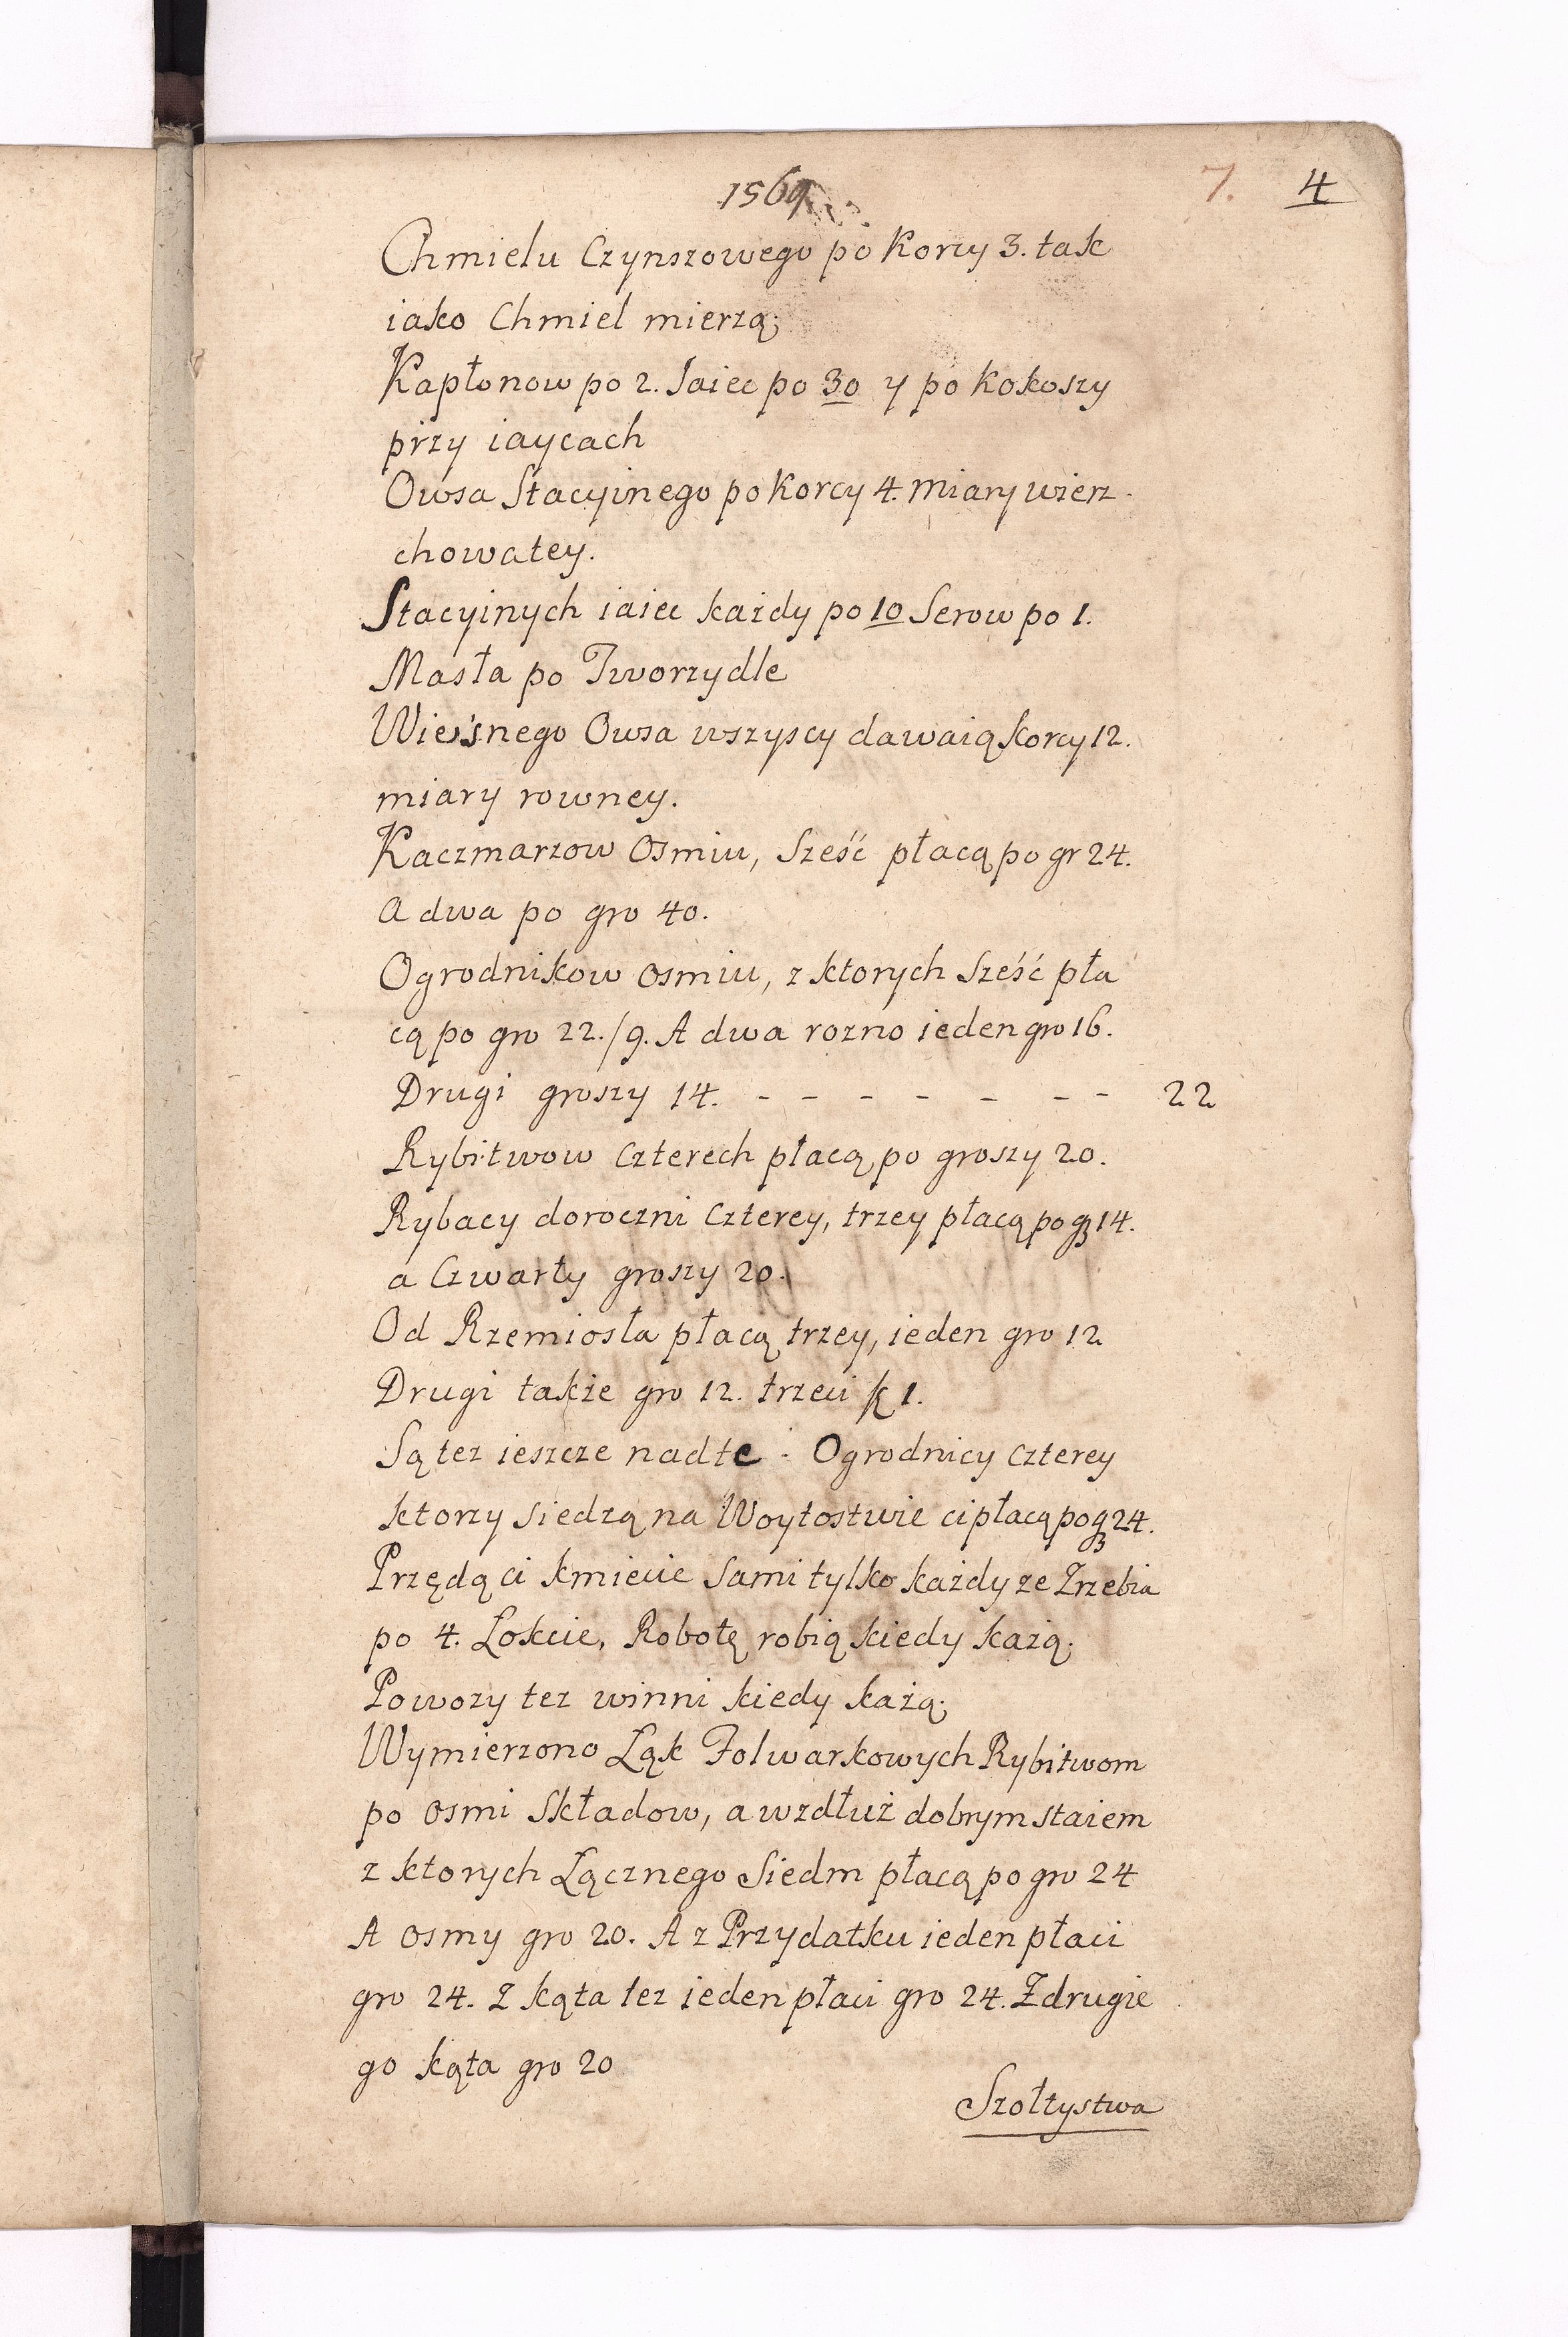 1569
7. 4
Chmielu Czynszowego po Korcy 3. tak
iako Chmiel mierzą.
Kapłonow po 2. Jaiec po 30 y po Kokoszy
przy iaycach
Owsa Stacyinego po Korcy 4. miary wierz-
chowatey.
Stacyinych iaiec każdy po 10 Serow po 1.
Masła po Tworzydle
Wieśnego Owsa wszyscy dawaią korcy 12.
miary rowney.
Kaczmarzow Osmiu, Sześć płacą po gr 24.
A dwa po gro 40.
Ogrodnikow osmiu, z ktorych Sześć pła
cą po gro 22./9. A dwa rozno ieden gro 16.
Drugi groszy 14. - - - - - - - 22
Rybitwow Czterech płacą po groszy 20.
Rybacy doroczni Czterey, trzey płacą po gr 14.
a Czwarty groszy 20.
Od Rzemiosła płacą trzey, ieden gro 12
Drugi także gro 12. trzeci k 1.
Są tez ieszcze nadte - Ogrodnicy Czterey
ktorzy siedzą na Woytostwie ci płacą po gr 24.
Przędą ci kmiecie Sami tylko każdy ze Zrzebia
po 4. Łokcie, Robotę robią kiedy każą.
Powozy tez winni kiedy każą.
Wymierzono Ląk Folwarkowych Rybitwom
po osmi Składow, a wzdłuż dobrym staiem
z ktorych Łącznego Siedm płacą po gro 24
A osmy gro 20. A z Przydatku ieden płaci
gro 24. Z kąta tez ieden płaci gro 24. Z drugie
go kąta gro 20
Szołtystwa